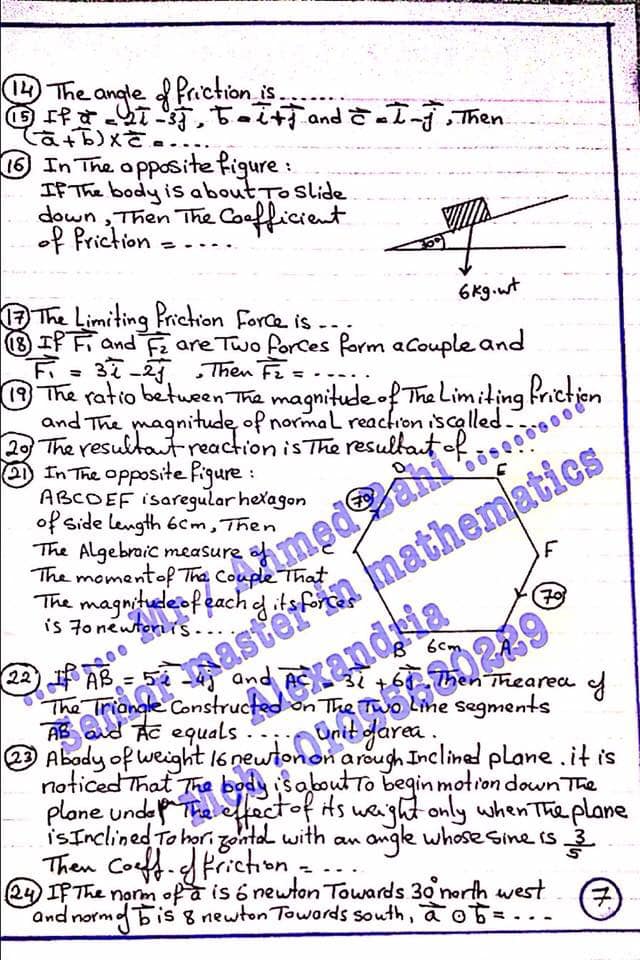 (14) The angle of friction is ......
(15) If a = 2i - 3j, b = i + j and c = i - j, Then
(a + b) × c = ....
(16) In The opposite figure:
If The body is about To slide
down, Then The Coefficient
of friction = ....
30°
6 kg.wt
(17) The Limiting Friction Force is ...
(18) If F1 and F2 are Two forces form a couple and
F1 = 3i - 2j, Then F2 = ......
(19) The ratio between The magnitude of The Limiting friction
and The magnitude of normal reaction is called ....
(20) The resultant reaction is The resultant of ......
(21) In The opposite figure:
ABCDEF is a regular hexagon
of side length 6cm, Then
The Algebraic measure of
The moment of The Couple That
The magnitude of each of its forces
is 70 newton is ......
D E
70
C F
70
B 6cm A
(22) If AB = 5i - 4j and AC = 3i + 6j, Then The area of
The Triangle Constructed on The Two Line segments
AB and AC equals .... unit of area.
(23) A body of weight 16 newton on a rough Inclined plane. it is
noticed That The body is about To begin motion down The
plane under The effect of its weight only when The plane
is Inclined To horizontal with an angle whose sine is 3/5
Then Coeff. of friction = ....
(24) If The norm of a is 6 newton Towards 30° north west
and norm of b is 8 newton Towards south, a ⊙ b = ....
7
......... Mr / Ahmed Bahi ..........
Senior master in mathematics
Alexandria